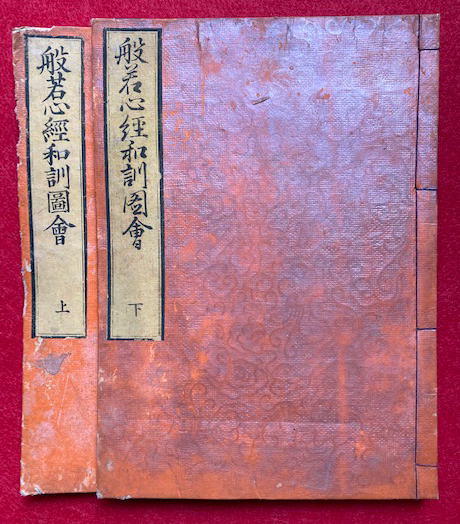 般若心經和訓圖會
上
般若心經和訓圖會
下